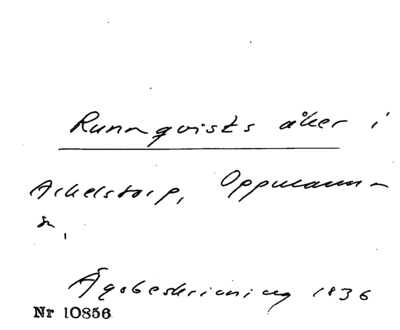 Runnqvists åker i
Arkelstorp, Oppmanna-
sn,
Ägobeskrivning 1836
Nr 10856